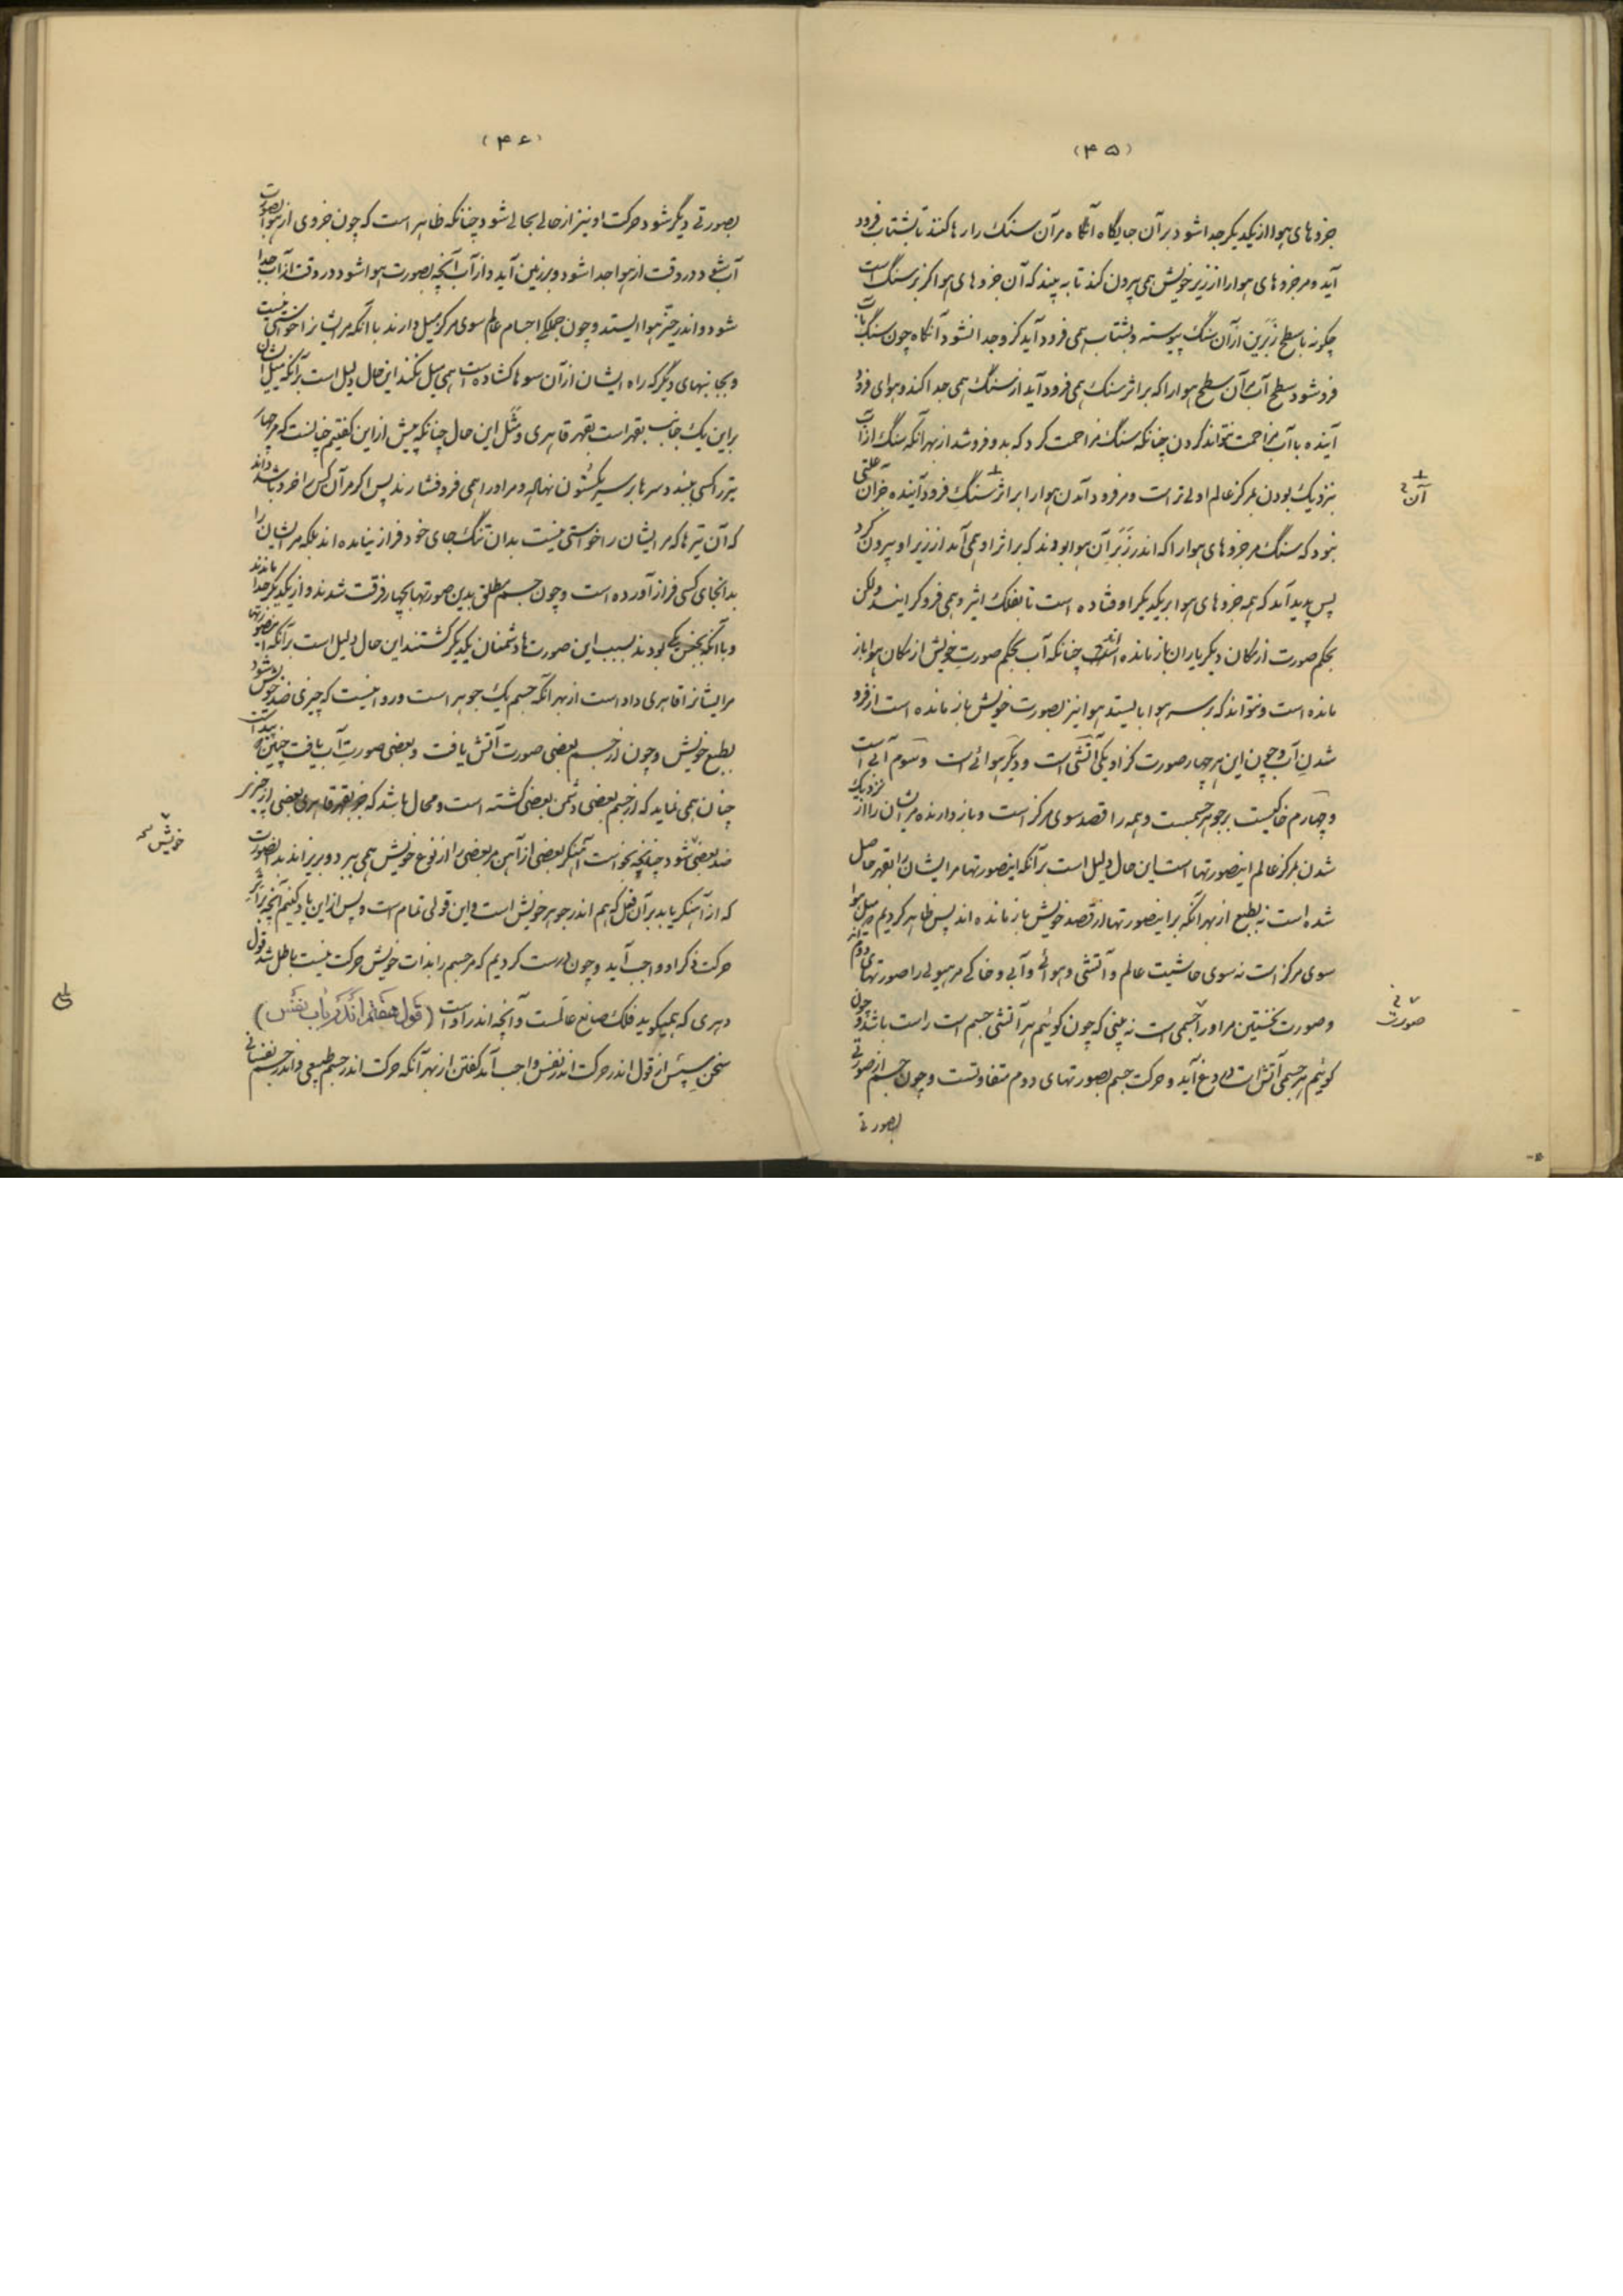 (۴۵)
جزوهای هوا از یکدیگر جدا شود بر آن جایگاه آنگاه مر آن سنگ را رها کنند تا بشتاب فرود
آید و مر جزوهای هوا را از زیر خویش همی بیرون کند تا به بیند که آن جزوهای هوا کز بر سنگ است
چگونه با سطح زبرین از آن سنگ پیوسته و بشتاب همی فرود آید کزو جدا نشود آنگاه چون سنگ بآب
فرو شود سطح آب مر آن سطح هوا را که بر اثر سنگ همی فرود آید از سنگ همی جدا کند و هوای فرود
آینده با آب مزاحمت نتواند کردن چنانکه سنگ مزاحمت کرد که بدو فرو شد از بهر آنکه سنگ از آب
بنزدیک بودن بمرکز عالم اولی تر است و مر فرود آمدن هوا را بر اثر سنگ فرود آینده جز آن علتی
نبود که سنگ مر جزوهای هوا را که اندر زبر آن هوا بودند که بر اثر او همی آمد از زیر او بیرون کرد
پس پدید آمد که همه جزوهای هوا بر یکدیگر اوفتاده است تا بفلک اثیر و همی فرو گرایند ولکن
بحکم صورت از مکان دیگر یاران باز مانده اند چنانکه آب بحکم صورت خویش از مکان هوا باز
مانده است و نتواند که بر سر هوا بایستد هوا نیز بصورت خویش باز مانده است از فرود
شدن آب و چون این هر چهار صورت کزاو یکی آتشی است و دیگر هوائی است و سوم آبی است
و چهارم خاکیست بر جوهر جسمست و همه را قصد سوی مرکز است و باز دارنده مر ایشان را از نزدیک
شدن بمرکز عالم اینصورتها است این حال دلیل است بر آنکه اینصورتها مر ایشان را بقهر حاصل
شده است نه بطبع از بهر آنکه بر اینصورتها از قصد خویش باز مانده اند پس ظاهر کردیم که میل هوا
سوی مرکز است نه سوی حاشیت عالم و آتشی و هوائی و آبی و خاکی مر هیولی را صورتهای دوم اند
و صورت نخستین مر او را جسمی است نه بینی که چون گوئیم هر آتشی جسم است راست باشد و چون
گوئیم هر جسمی آتش است دروغ آید و حرکت جسم بصورتهای دوم متفاوتست و چون جسم از صورتی
بصورتی
آن
صورت
(۴۶)
بصورتی دیگر شود حرکت او نیز از حالی بحالی شود چنانکه ظاهر است که چون جزوی از هوا بصورت
آب شود در وقت از هوا جدا شود و بر زمین آید و از آب آنچه بصورت هوا شود در وقت از آب جدا
شود و اندر حیز هوا ایستد و چون جملگی اجسام عالم سوی مرکز میل دارند با آنکه مر ایشانرا خواستی نیست
و بجانبهای دیگر که راه ایشان از آن سوها گشاده است همی میل نکنند این حال دلیل است بر آنکه میل ایشان
بر این یک جانب بقهر است بقهر قاهری و مثل این حال چنانکه پیش از این گفتیم چنانست که مر چهار
تیر را کسی ببیند و سرها بر سر یک ستون نهاده و مر او را همی فرو فشارند پس اگر مر آن کس را خرد باشد داند
که آن تیرها که مر ایشان را خواستی نیست بدان تنگ جای خود فراز نیامده اند بلکه مر ایشان را
بدانجای کسی فراز آورده است و چون جسم مطلق بدین صورتها بچهار فرقت شدند و از یکدیگر جدا ماندند
و با آنکه بجنس یکی بودند بسبب این صورتها دشمنان یکدیگر گشتند این حال دلیل است بر آنکه اینصورتها
مر ایشانرا قاهری داده است از بهر آنکه جسم یک جوهر است و روا نیست که چیزی ضد خویش شود
بطبع خویش و چون از جسم بعضی صورت آتش یافت و بعضی صورت آب یافت چنین
چنان همی نماید که از جسم بعضی دشمن بعضی گشته است و محال باشد که جز بقهر قاهری بعضی از چیزی
ضد بعضی شود چنانچه بخواست آهنگر بعضی از آهن مر بعضی را از نوع خویش همی ببرد و بریزاند بدان صورت
که از آهنگر یابد بر آن فعل که هم اندر جوهر خویش است و این قولی تمام است و پس از این یاد کنیم آنچه بر اثر
حرکت ذکر او واجب آید و چون درست کردیم که مر جسم را بذات خویش حرکت نیست باطل شد قول
دهری که همیگوید فلک صانع عالمست و آنچه اندر اوست (قول هفتم اندر باب نفس)
سخن سپس از قول اندر حرکت اندر نفس واجب آمد گفتن از بهر آنکه حرکت اندر جسم طبیعی و اندر جسم نفسانی
خویش